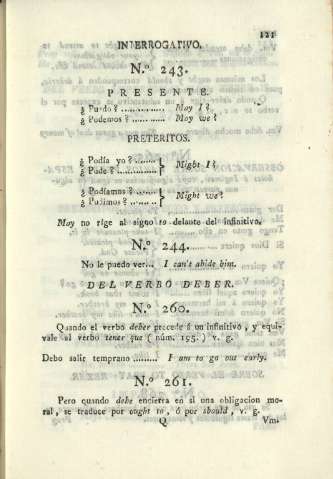 121
INTERROGATIVO.
N.º 243.
PRESENTE.
¿ Puedo ? .............. May I?
¿ Podemos ? ............ May we?
PRETERITOS.
¿ Podía yo ? ........
¿ Pude ? ............ } Might I?
¿ Podíamos ? .......
¿ Pudimos ? ........ } Might we?
May no rige al signo to delante del infinitivo.
N.º 244.
No le puedo ver... I can't abide him.
DEL VERBO DEBER.
N.º 260.
Quando el verbo deber precede á un infinitivo , y equi-
vale al verbo tener que ( núm. 195. ) v. g.
Debo salir temprano ......... I am to go out early.
N.º 261.
Pero quando debe encierra en sí una obligacion mo-
ral , se traduce por ought to , ó por should , v. g.
Q Vm.